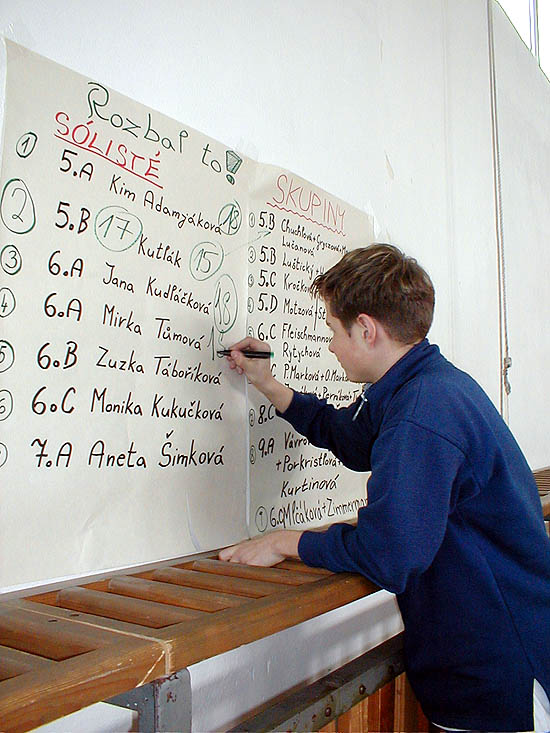 Rozbal to!
SÓLISTÉ
1 5.A Kim Adamzáková 13
2 5.B 17 Kutlák 15
3 6.A Jana Kudláčková 18
4 6.A Mirka Tůmová 1
5 6.B Zuzka Táboříková
6 6.C Monika Kukučková
7.A Aneta Šimková
SKUPINY
5.B Chuchlová+Gryczová+M
Lučanová
5.B Luštický+
5.C Kročko
5.D Motzová+S
6.C Fleischmanno
Rytychová
P.Marková+O.Mark
8.C
9.A Vávro
+Porkristlová+
Kurtinová
Mlčáková+Zimmerman